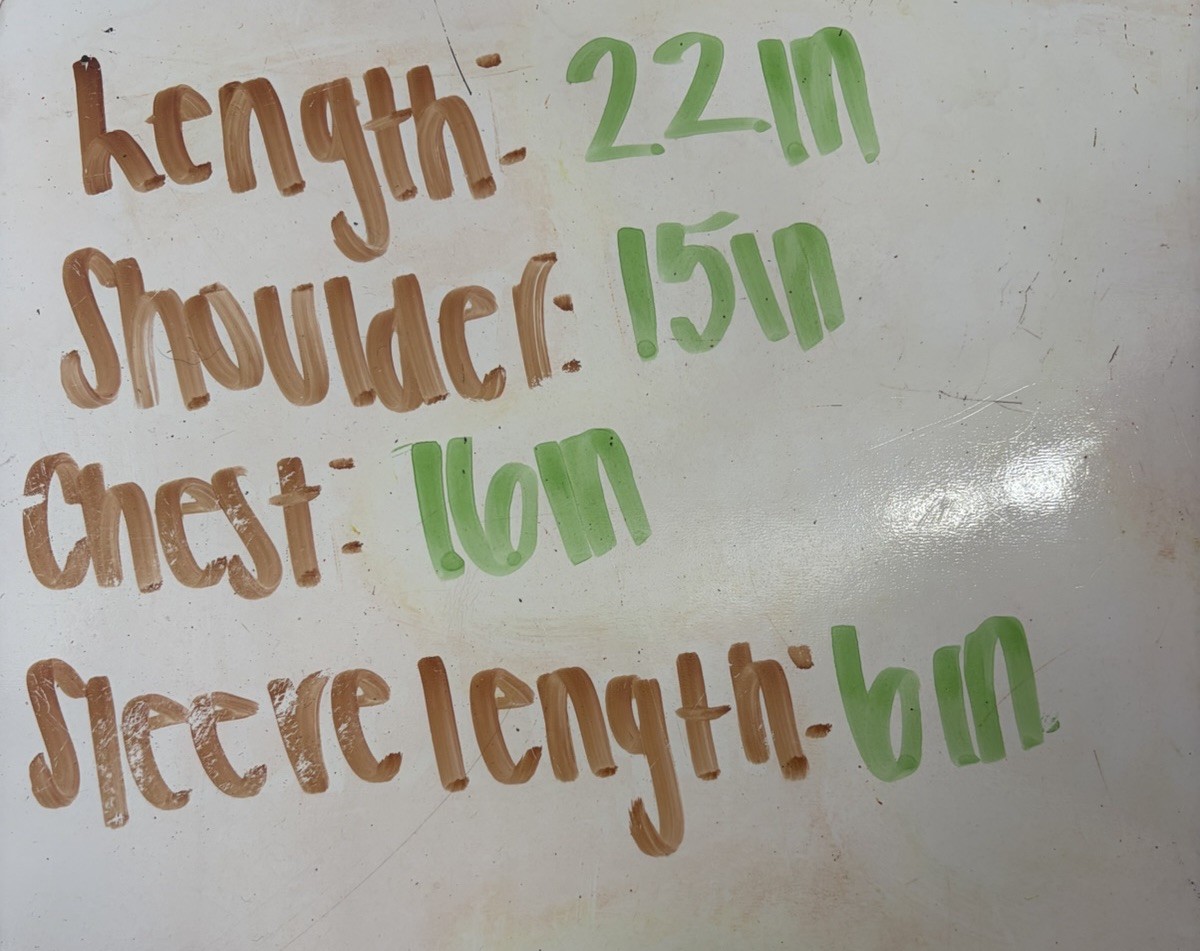 Length: 22in
Shoulder: 15in
Chest: 16in
Sleeve length: 6in